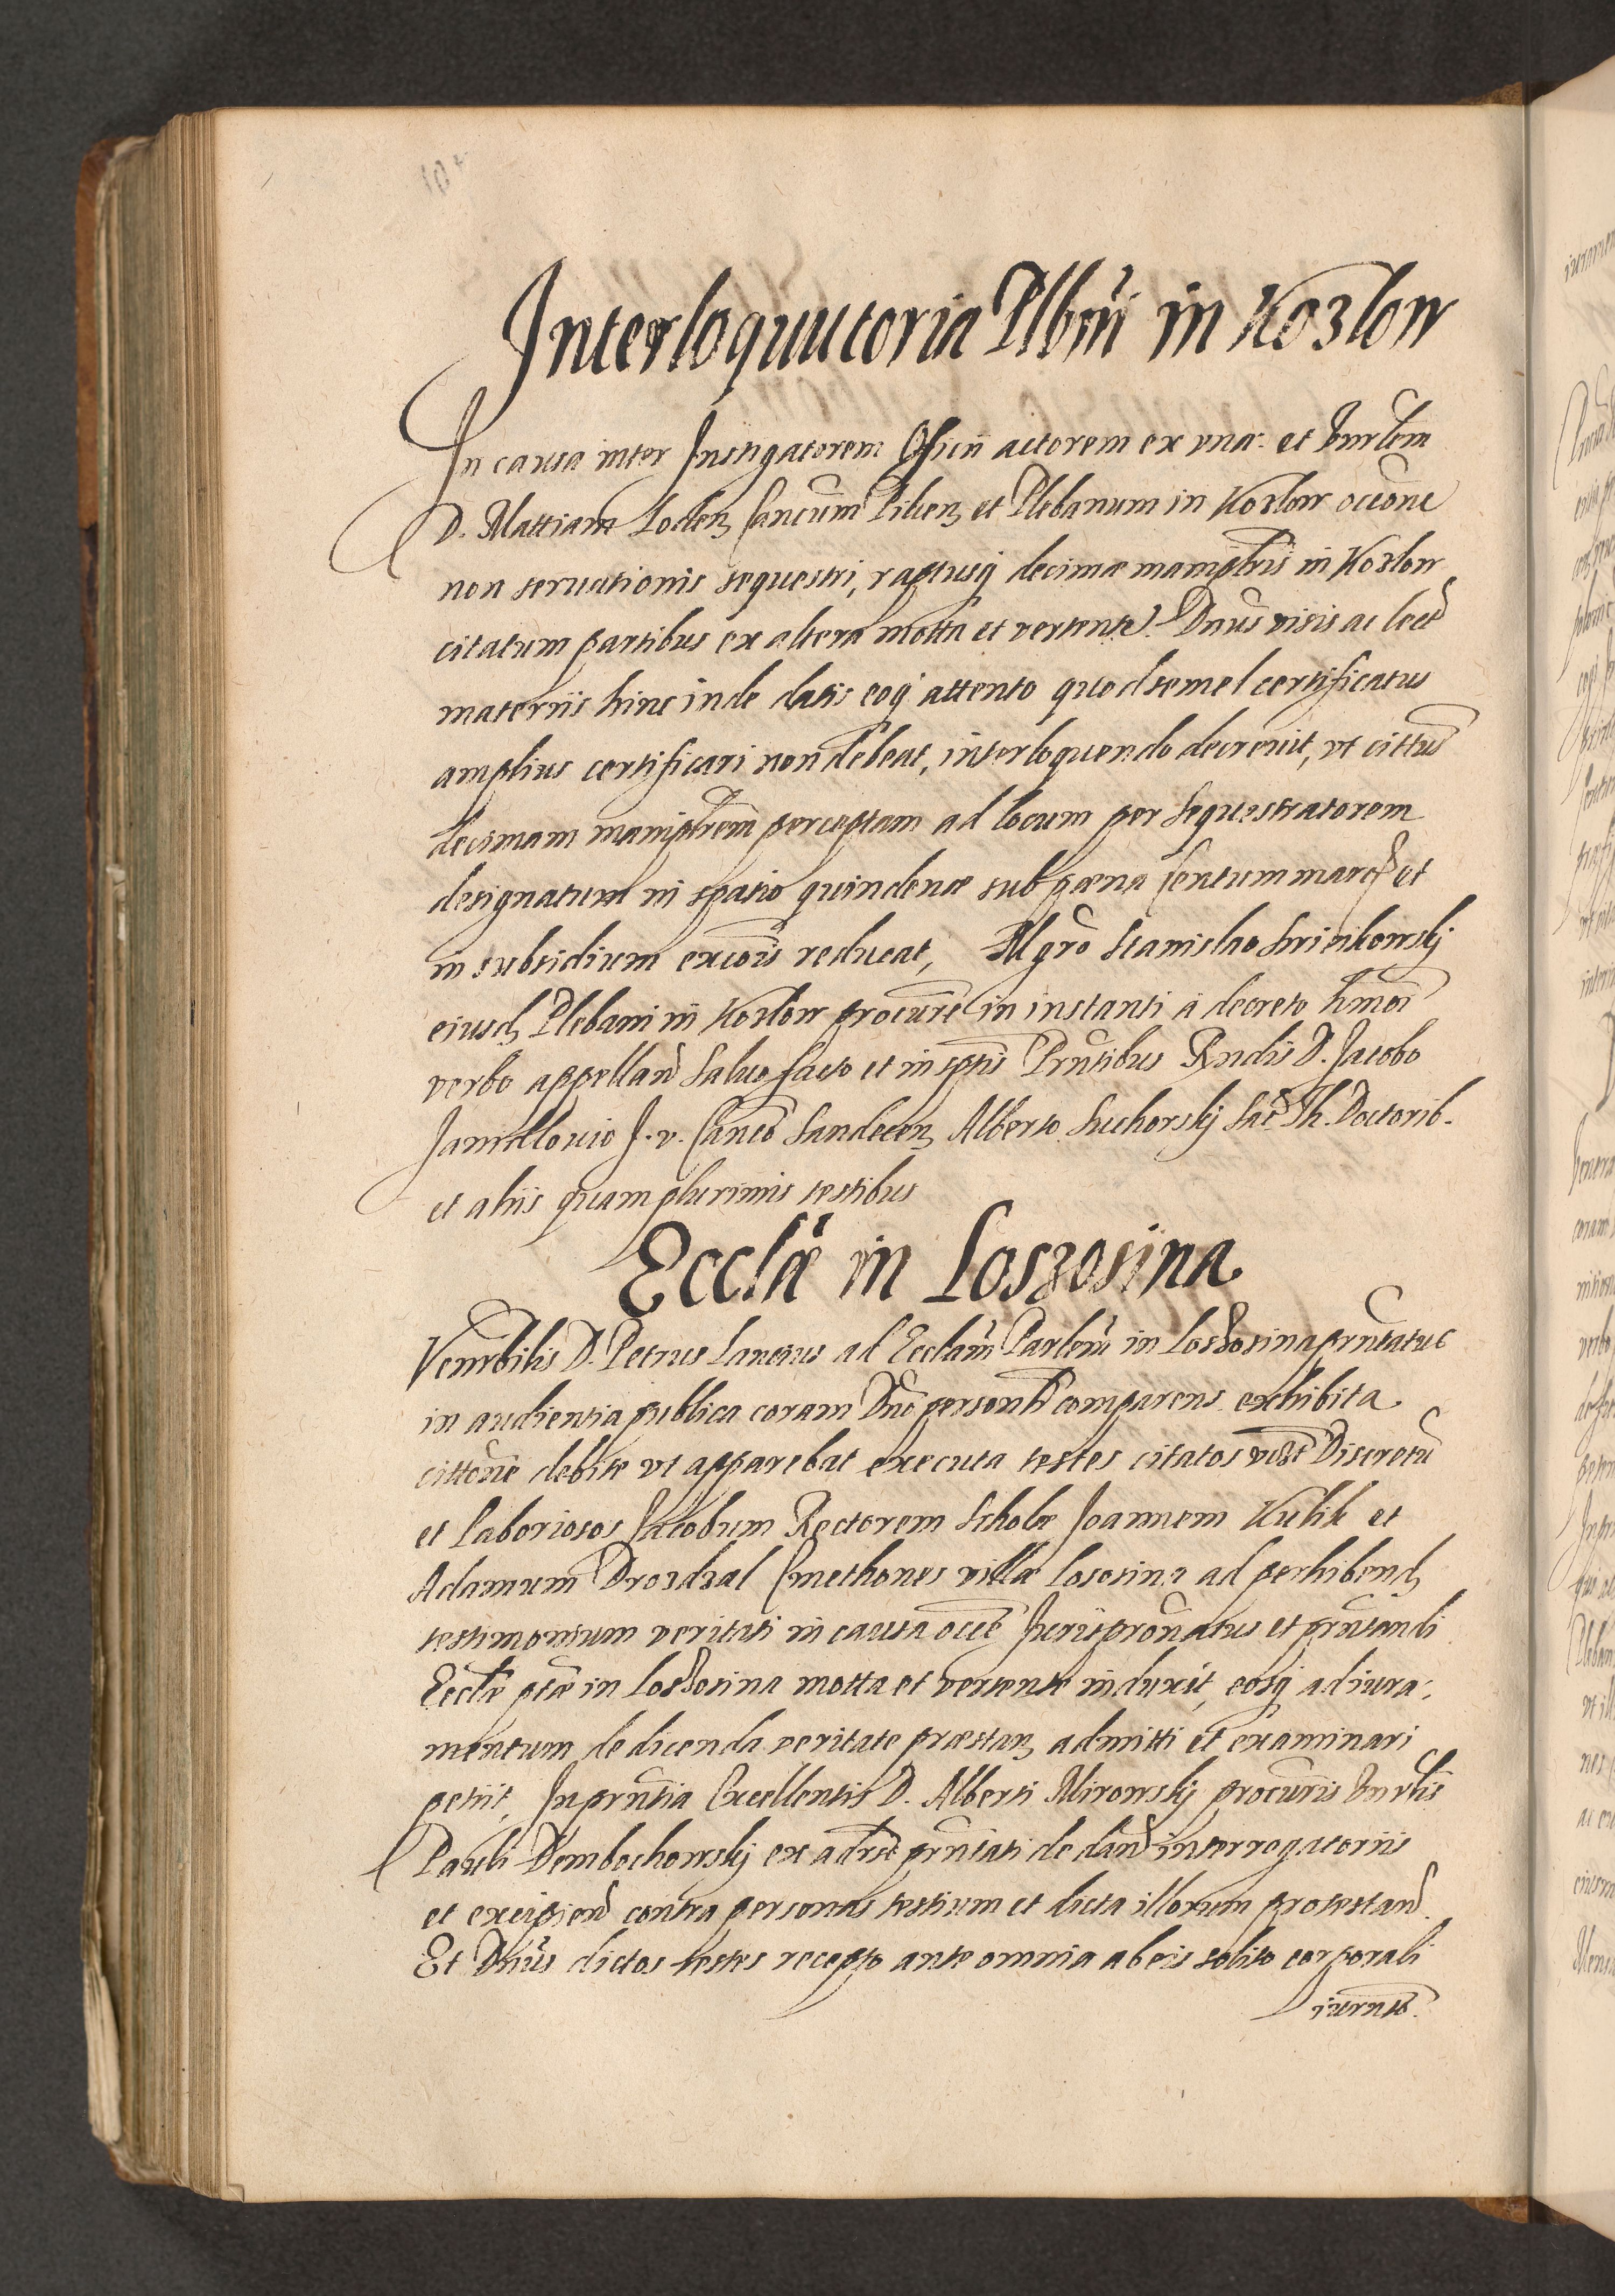 Interloquutoria Plbni in Kozlow
In causa inter Instigatorem Officii actorem ex vna. et Venrblem
D. Mattiam Loden Cancum Pilicen et Plebanum in Kozlow occone
non seruationis sequestri, raptusq decimæ maniplris in Kozlow
citatum partibus ex altera motta et vertente. Dnus visis ac lect
materiis hinc inde datis eoq attento quod semel certificatus
amplius certificari non debeat, interloquendo decreuit, vt cittus
decimam maniplrem perceptam ad locum per Sequestratorem
designatum in spatio quindenæ sub pæna Centum marc et
in subsidium excois reducat, Mgro Stanislao
eiusd Plebani in Kozlow procure in instanti a decreto hmoi
verbo appellan Saluo facto et in sptis Prntibus Rndis D. Jacobo
Janidlouio J. v. Canco Sandecen Alberto Suchorskj Sac Th. Doctorib.
et aliis quam plurimis testibus
Ecclæ in Loszosina
Venrbilis D. Petrus Lancius ad Ecclam Parlem in Loszosina prntatus
in audientia publica coram Dno personlr comparens exhibita
cittone debite vt apparebat executa testes citatos vdst Discretu
et Laboriosos Jacobum Rectorem Scholæ Joannem Kulik et
Adamum Drozdzal Cmethones villæ Lososina ad perhibend
testimonium veritati in causa occe Jurispronatus et prntandi
Ecclæ ptæ in Loszosina motta et vertente induxit, eosq ad iura-
mentum de dicenda veritate præstan admitti et examinari
petiit, In prntia Excellentis D. Alberti Mirowskj procuris Venrblis
Pauli Dembochowskj ex adrso prntati de dand interrogatoriis
et excipiend contra personas testium et dicta illorum protestand
Et Dnus dictos testes recepto ante omnia ab eis solito corporali
iurnto